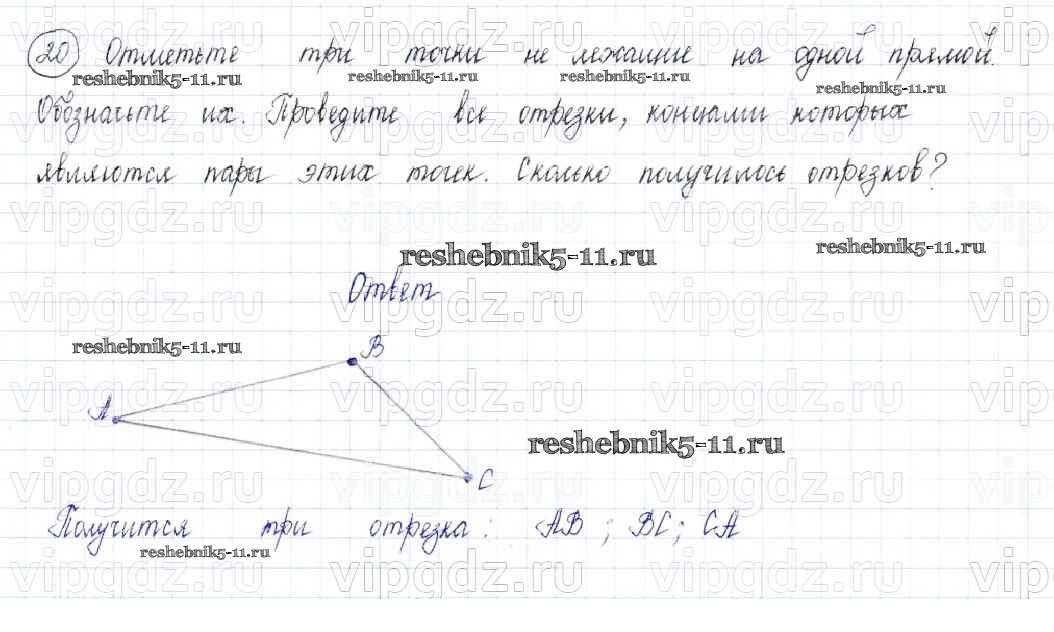 20 Отметьте три точки не лежащие на одной прямой.
Обозначьте их. Проведите все отрезки, концами которых
являются пары этих точек. Сколько получилось отрезков?
Ответ
B
A
C
Получится три отрезка: AB; BC; CA
reshebnik5-11.ru
reshebnik5-11.ru
reshebnik5-11.ru
reshebnik5-11.ru
reshebnik5-11.ru
reshebnik5-11.ru
reshebnik5-11.ru
reshebnik5-11.ru
reshebnik5-11.ru
vipgdz.ru